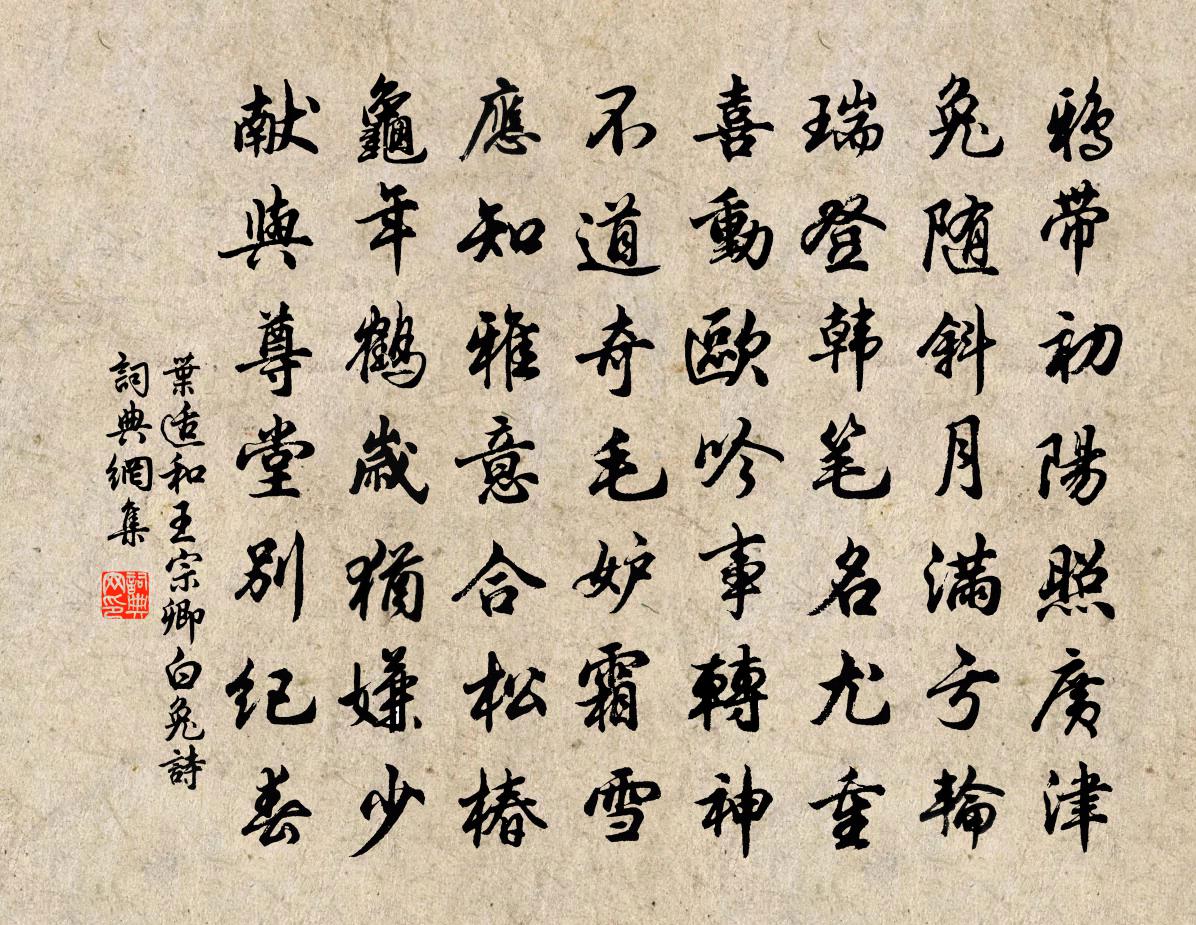 鴉帶初陽照廣津
兔随斜月滿亏輪
瑞登韩笔名尤重
喜動歐吟事轉神
不道奇毛妒霜雪
應知雅意合松椿
龜年鶴歲猶嫌少
献與尊堂別纪春
葉适和王宗卿白兔詩
詞典網集
詞典网印